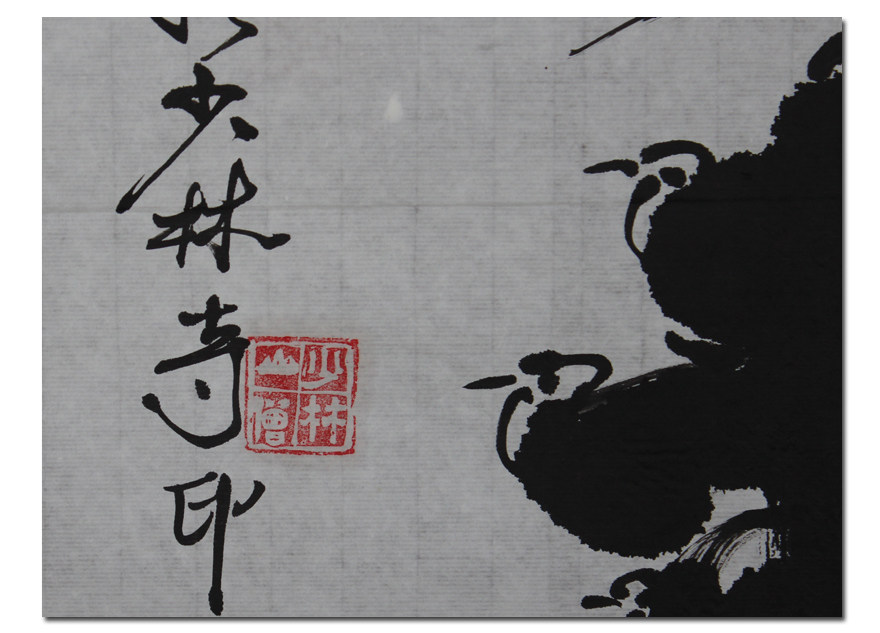 少林寺印
少林
山僧